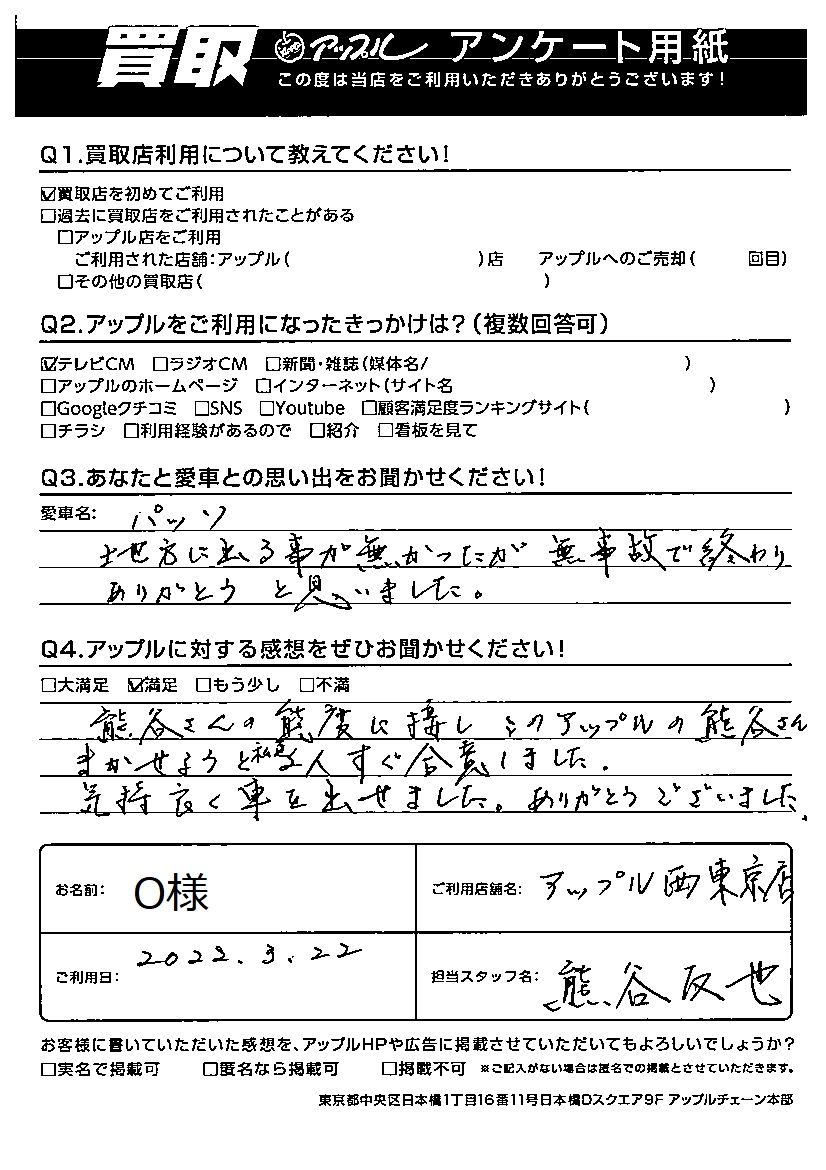 買取 アップル アンケート用紙
この度は当店をご利用いただきありがとうございます!
Q1.買取店利用について教えてください!
☑買取店を初めてご利用
□過去に買取店をご利用されたことがある
□アップル店をご利用
ご利用された店舗:アップル( )店 アップルへのご売却( 回目)
□その他の買取店( )
Q2.アップルをご利用になったきっかけは?(複数回答可)
☑テレビCM □ラジオCM □新聞・雑誌(媒体名/ )
□アップルのホームページ □インターネット(サイト名 )
□Googleクチコミ □SNS □Youtube □顧客満足度ランキングサイト( )
□チラシ □利用経験があるので □紹介 □看板を見て
Q3.あなたと愛車との思い出をお聞かせください!
愛車名: パッソ
地方に出る事が無かったが 無事故で終わり
ありがとう と思いました。
Q4.アップルに対する感想をぜひお聞かせください!
□大満足 ☑満足 □もう少し □不満
熊谷さんの態度に接し このアップルの熊谷さん
まかせようと 人すぐ合意しました.
気持良く車を出せました。ありがとうございました.
お名前: O様 ご利用店舗名: アップル西東京店
ご利用日: 2022.3.22 担当スタッフ名: 熊谷友也
お客様に書いていただいた感想を、アップルHPや広告に掲載させていただいてもよろしいでしょうか?
□実名で掲載可 □匿名なら掲載可 □掲載不可 ※ご記入がない場合は匿名での掲載とさせていただきます。
東京都中央区日本橋1丁目16番11号日本橋Dスクエア9F アップルチェーン本部